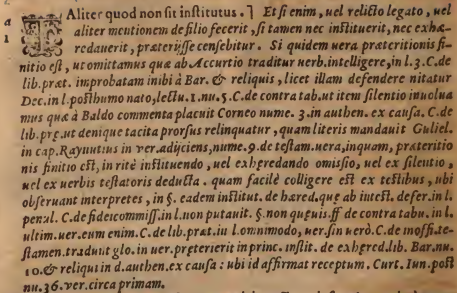 a
1
Aliter quod non sit institutus. ] Et si enim, uel relicto legato, uel
aliter mentionem de filio fecerit, si tamen nec instituerit, nec exhæ-
redauerit, præterijsse censebitur. Si quidem uera præteritionis fi-
nitio est, ut omittamus quæ ab Accurtio traditur uerb. intelligere, in l. 3. C. de
lib. præt. improbatam inibi à Bar. & reliquis, licet illam defendere nitatur
Dec. in l. posthumo nato, lectu. 1. nu. 5. C. de contra tab. ut item silentio inuolua
mus quæ à Baldo commenta placuit Corneo nume. 3. in authen. ex causa. C. de
lib. pre. ut denique tacita prorsus relinquatur, quam literis mandauit Guliel.
in cap. Raynutius in ver. adijciens, nume. 9. de testam. uera, inquam, præteritio
nis finitio est, in ritè instituendo, uel exheredando omissio, uel ex silentio,
uel ex uerbis testatoris deducta. quam facilè colligere est ex testibus, ubi
obseruant interpretes, in §. eadem institut. de hæred. quæ ab intest. defer. in l.
penul. C. de fideicommiss. in l. non putauit. §. non queuis. ff de contra tabu. in l.
ultim. uer. eum enim. C. de lib. præt. in l. omnimodo, uer. sin uerò. C. de inoffi. te-
stamen. tradunt glo. in uer. preterierit in princ. instit. de exhæred. lib. Bar. nu.
10. & reliqui in d. authen. ex causa: ubi id affirmat receptum. Curt. Iun. post
nu. 36. ver. circa primam.